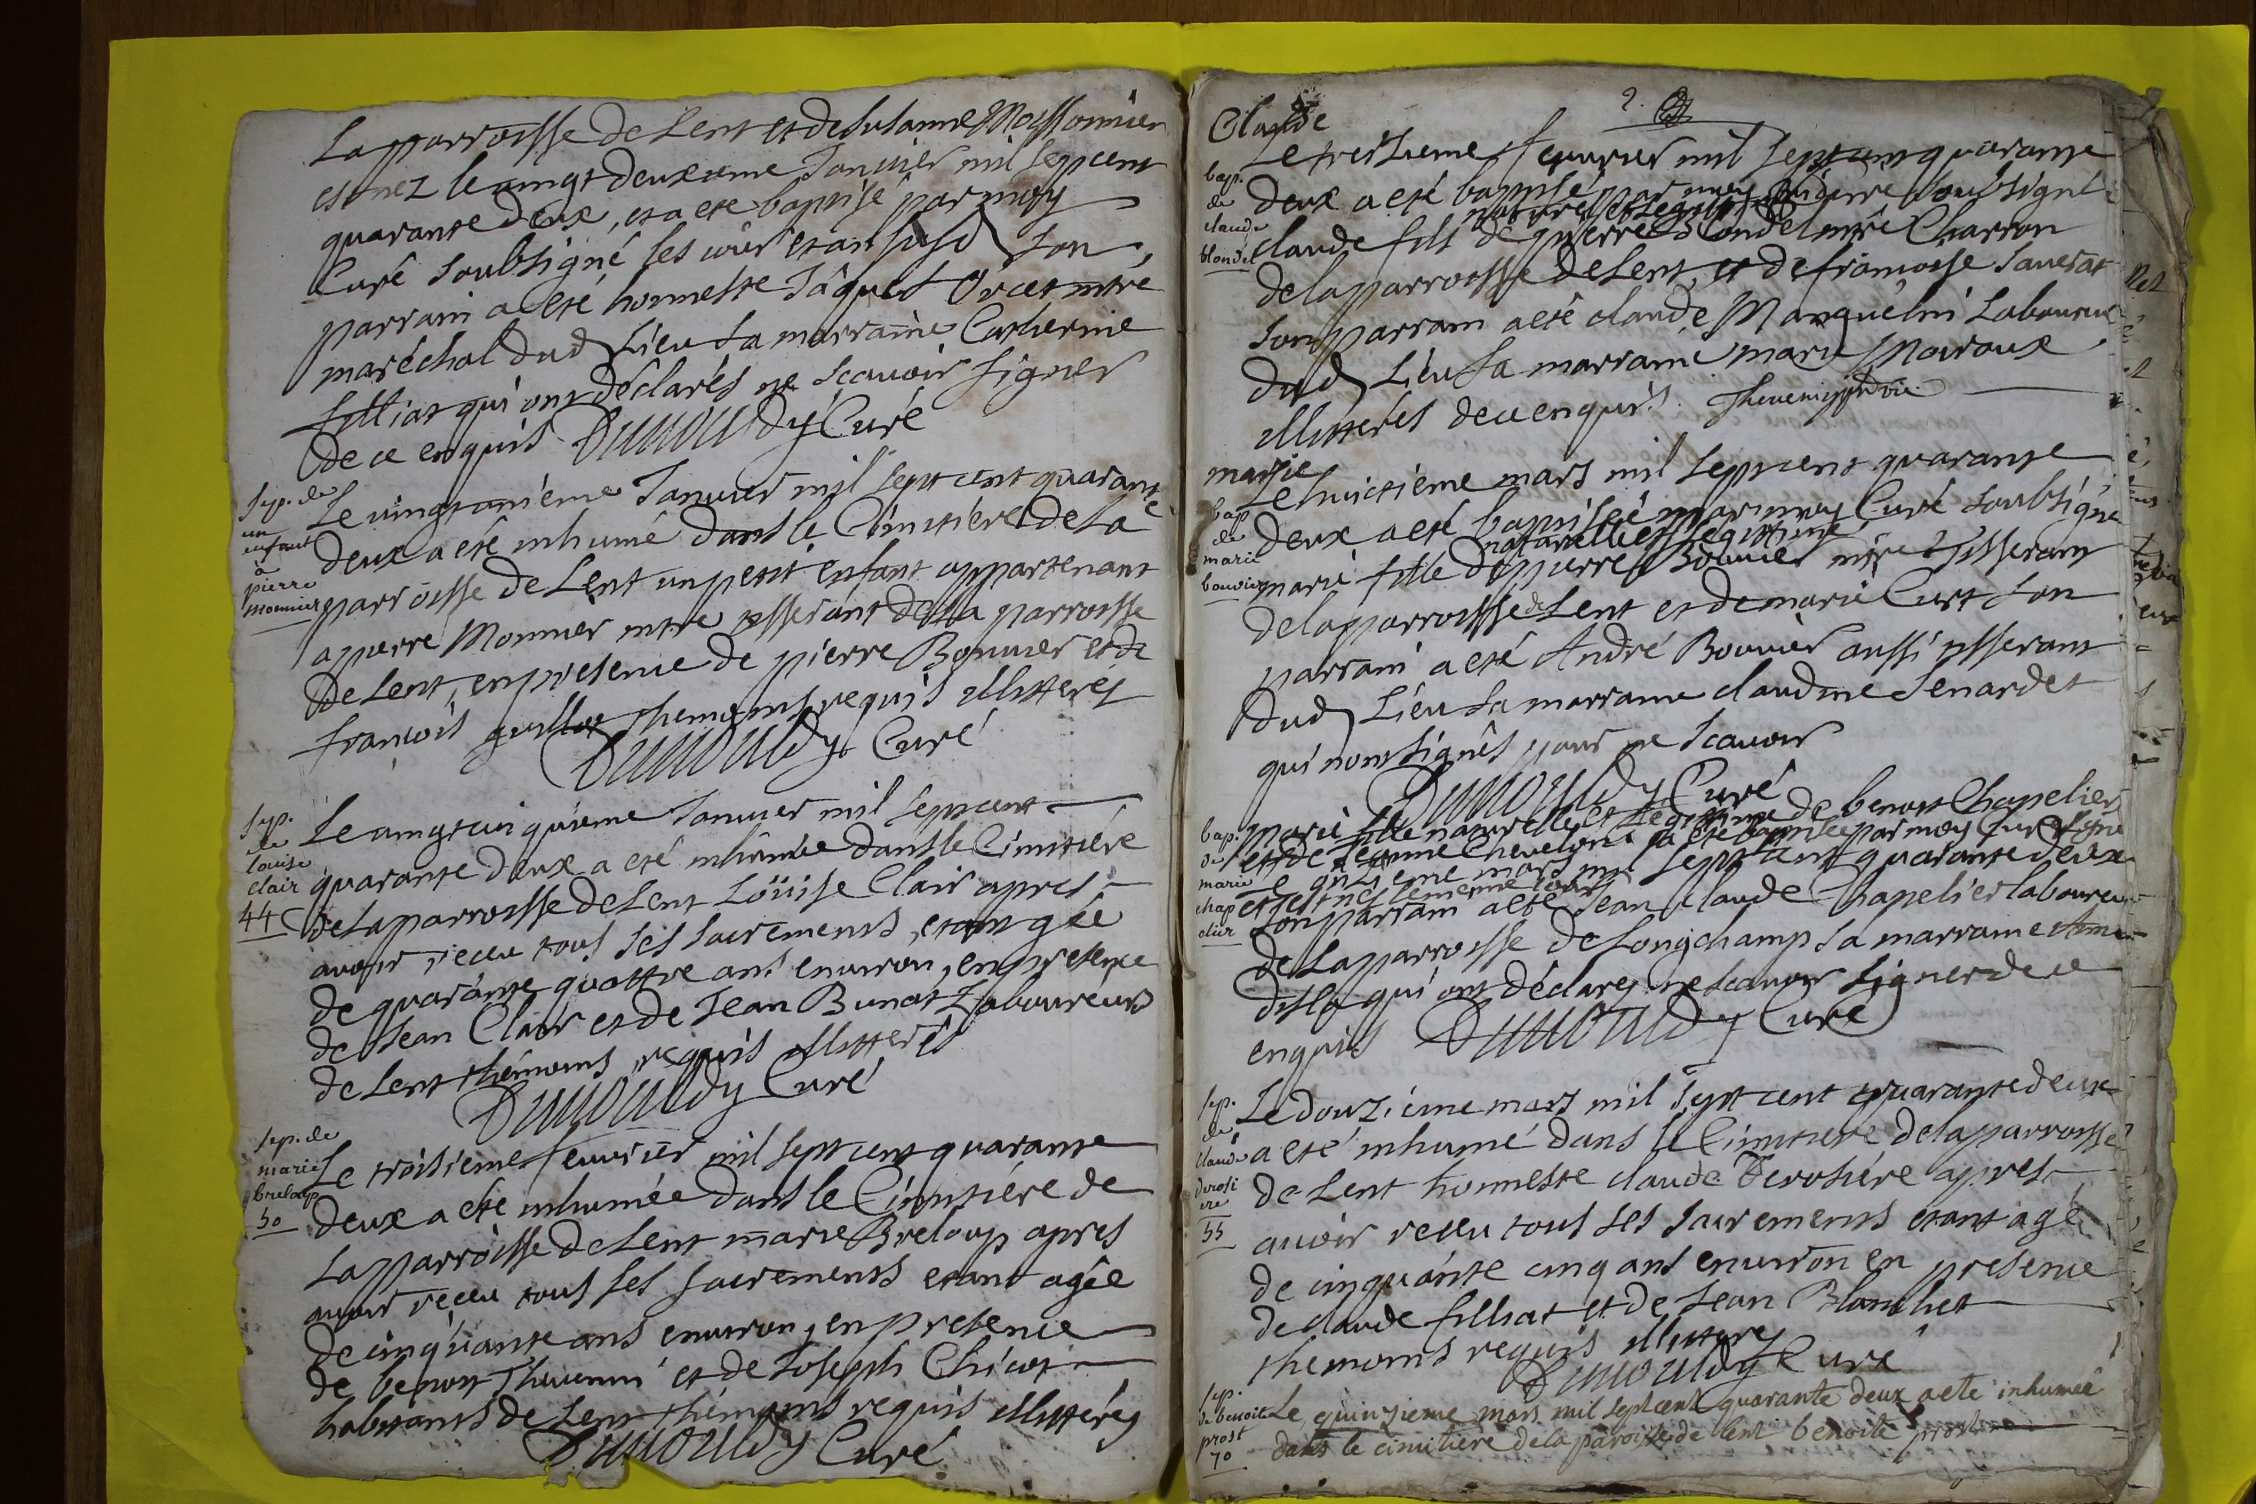 La parroisse de Lent et de Susanne Moissonnier
est nez le vingt deuxieme Janvier mil sept cent
quarante deux, et a eté baptisé par moy
Curé soubsigné les jour et an susd son
parrain a eté honneste Jâques Orset mtre
maréchal dud Lieu sa marraine Catherine
filliat qui ont déclarés ne scavoir signer
de ce enquis Dumouldy Curé
sep. de
un
enfant
à
pierre
monnier
Le vingt unième Janvier mil sept cent quarante
deux a eté inhumé dans le Cimitière de La
parroisse de Lent un petit enfant appartenant
a pierre Monnier mtre tisserant de la parroisse
de Lent, en presence de pierre Bonnier et de
françois guillot themoins requis illitterés
Dumouldy Curé
sep.
de
louise
clair
44
Le vingt cinquième Janvier mil sept cent
quarante deux a eté inhumée dans le Cimitiére
de La parroisse de Lent Loüise Clair apres
avoir receu tous ses sacrements, etant agée
de quarante quattre ans environ, en presence
de Jean Clair et de Jean Bunat Laboureurs
de Lent thémoins requis illitterés
Dumouldy Curé
sep. de
marie
breloup
50
Le troisieme fevurier mil sept cent quarante
deux a eté inhumée dans le Cimitiére de
La parroisse de Lent marie Breloup apres
avoir receu tous ses sacrements etant agée
de cinquante ans environ, en presence
de benoit Thevenin et de Joseph Chicot
habitants de Lent thémoins requis illitterés
Dumouldy Curé
2.
Claude
bap.
de
claude
blondel
Le treizieme fevurier mil sept cent quarante
deux a eté baptisé par moy vicaire soubsigné
naturel et Legitime
claude fils de pierre Blondel mtre Charron
de la parroisse de Lent, et de francoise Saverat
son parrain a eté claude Manguelin Laboureur
dud Lieu sa marraine marie Moiroux
illitterés de ce enquis. Thevenin vicaire
marie
bap
de
marie
bouvier
Le huictiéme mars mil sept cent quarante
deux a eté baptisée par moy Curé soubsigné
naturelle et Legitime
marie fille de pierre Bouvier mtre tisserant
de la parroisse de Lent et de marie Curt son
parrain a eté André Bouvier aussi tisserant
dud Lieu sa marraine claudine Senardet
qui n'ont signés pour ne scavoir
Dumouldy Curé
bap.
de
marie
chap
elier
marie fille naturelle et Legitime de benoit Chapelier
et de Jeanne Chevelon a eté baptisée par moy Curé signé
le onzieme mars mil sept cent quarante deux
et est née le meme jour
son parrain a eté Jean claude Chapelier laboureur
de La parroisse de Longchamp sa marraine Anne
disla qui ont déclarés ne scavoir signer de ce
enquis Dumouldy Curé
sep.
de
claude
derosi
ere
55
Le douzième mars mil sept cent quarante deux
a eté inhumé dans le Cimitiere de la parroisse
de Lent honneste claude Derosiére apres
avoir receu tous ses sacrements etant agé
de cinquante cinq ans environ en presence
de claude filliat et de Jean Blanchet
themoins requis illitterés
Dumouldy Curé
sep.
de benoite
prost
70
Le quinzieme mars mil sept cent quarante deux a eté inhumeé
dans le cimitiere de la paroisse de lent benoite prost